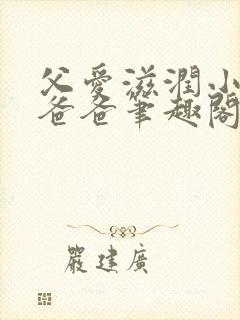 父愛滋潤小
爸爸筆趣閣
嚴建廣